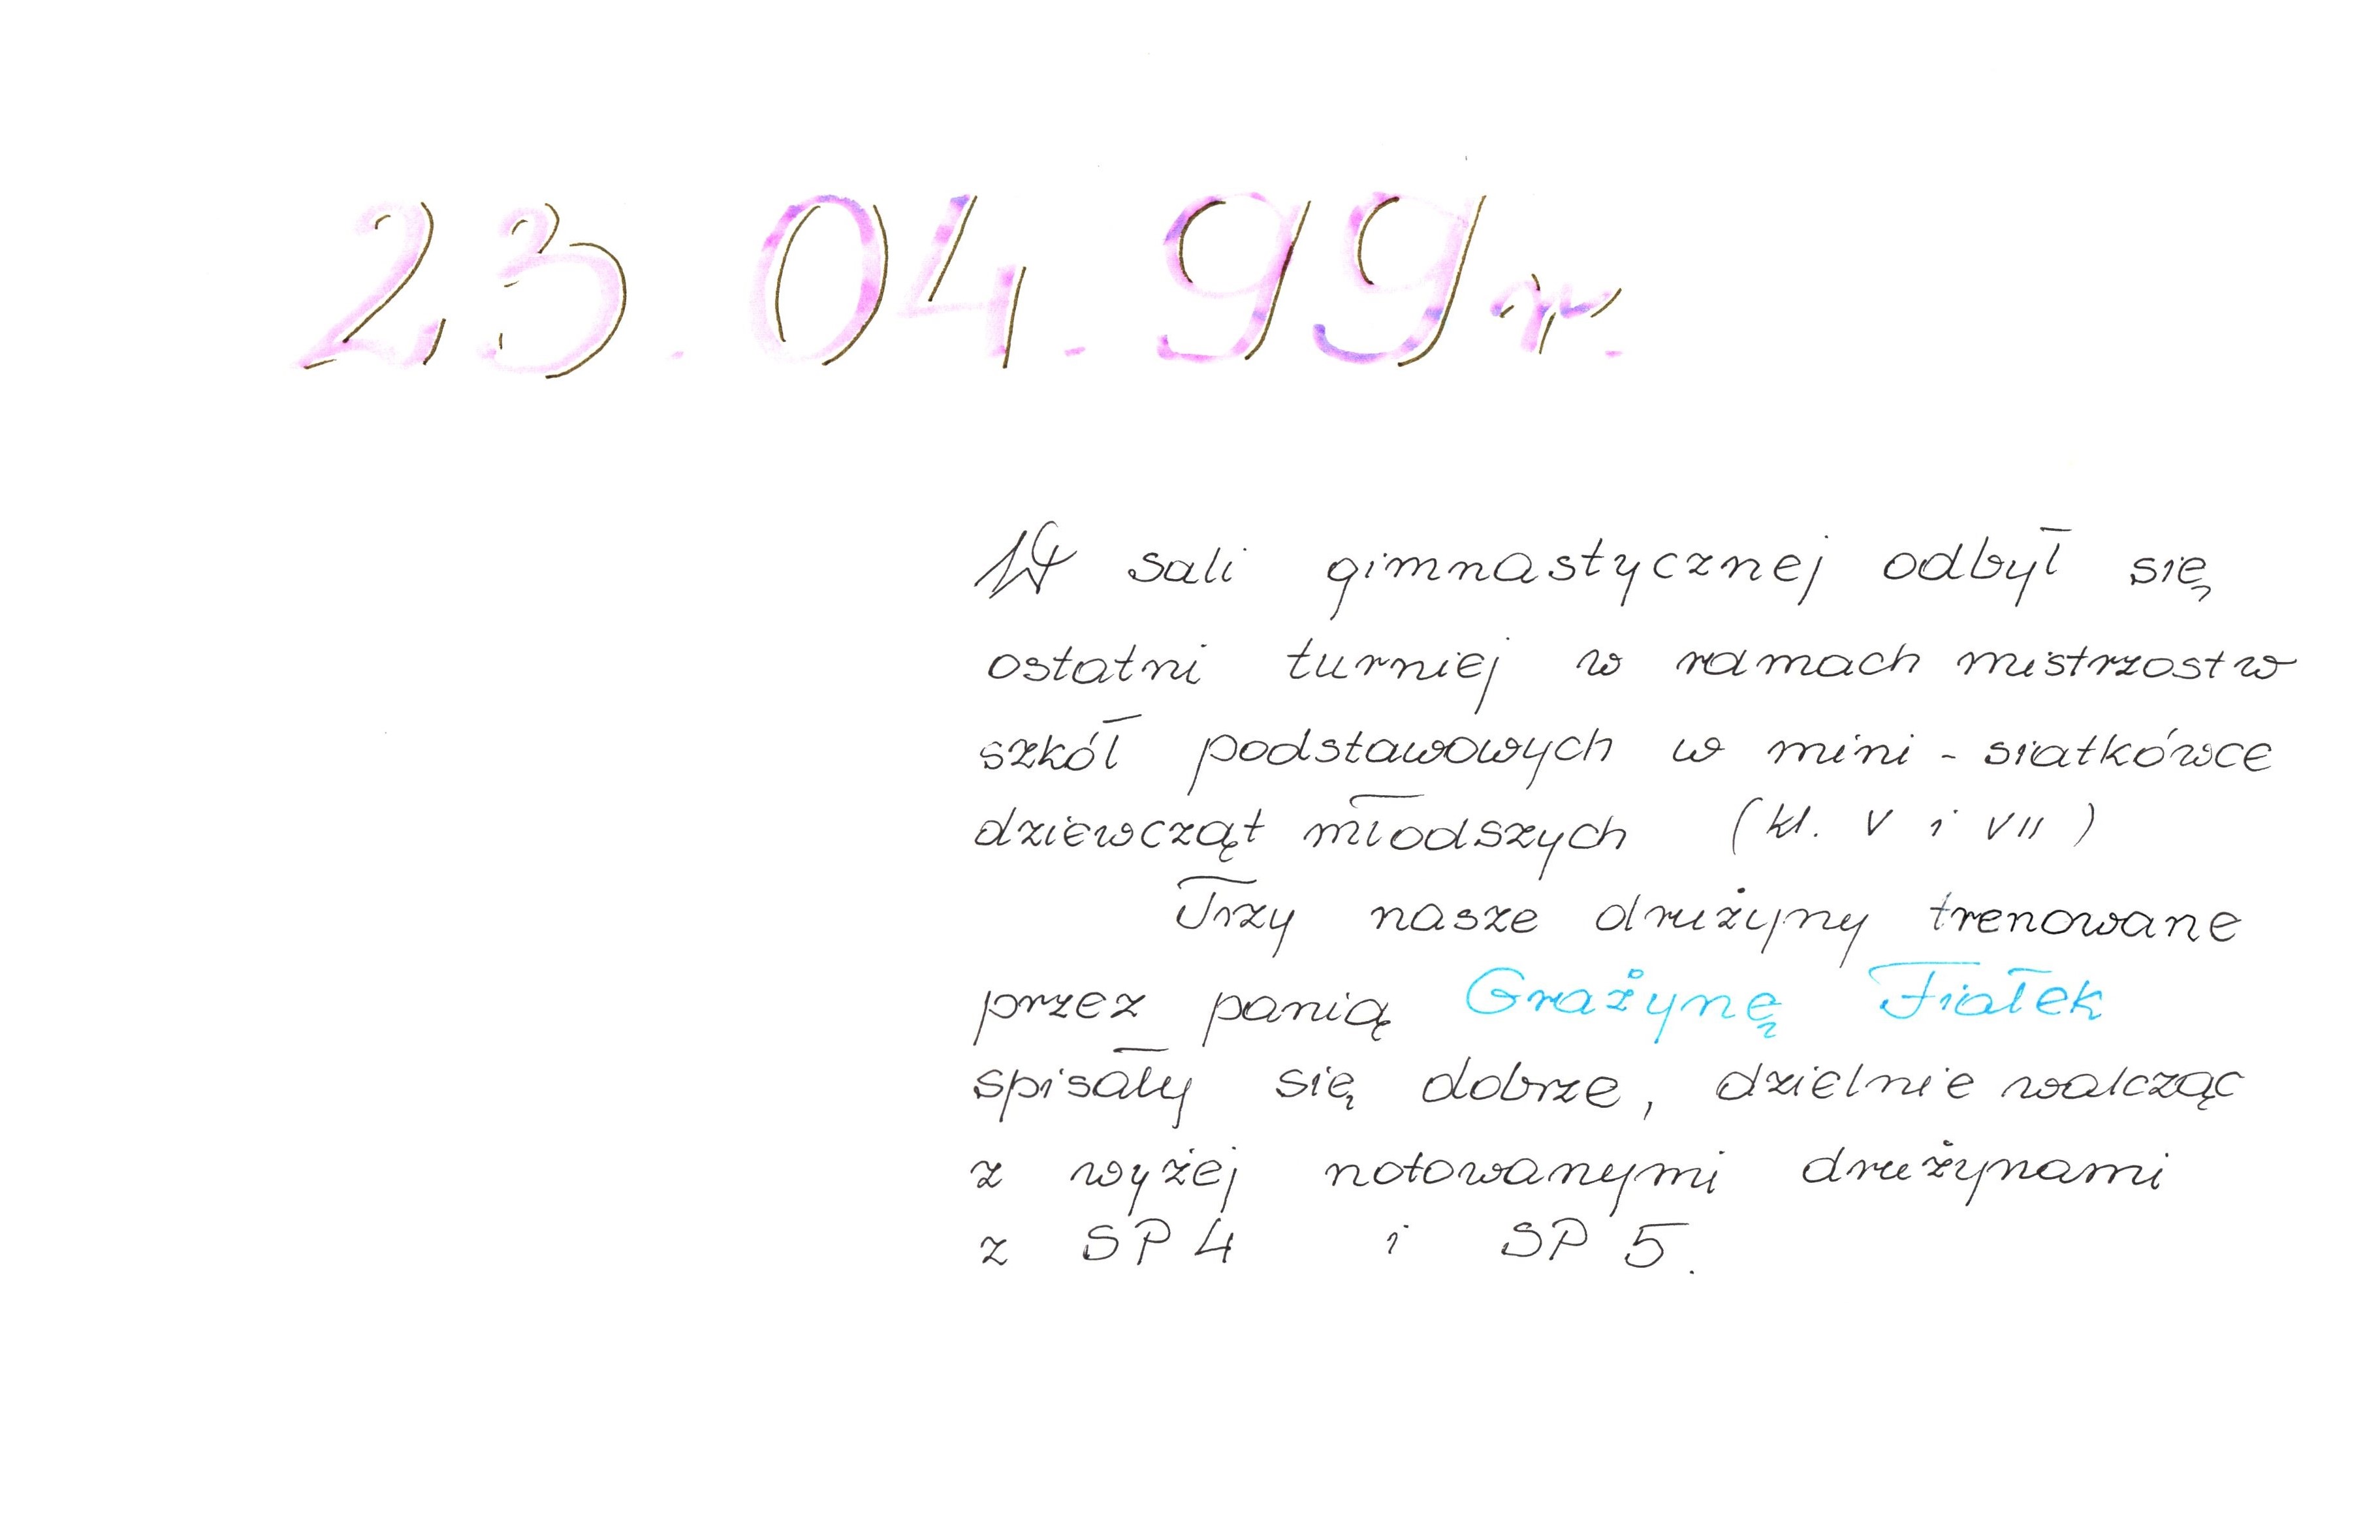 23.04.99r.
W sali gimnastycznej odbył się
ostatni turniej w ramach mistrzostw
szkół podstawowych w mini-siatkówce
dziewcząt młodszych (kl. V i VII)
Trzy nasze drużyny trenowane
przez panią Grażynę Fiałek
spisały się dobrze, dzielnie walcząc
z wyżej notowanymi drużynami
z SP 4 i SP 5.